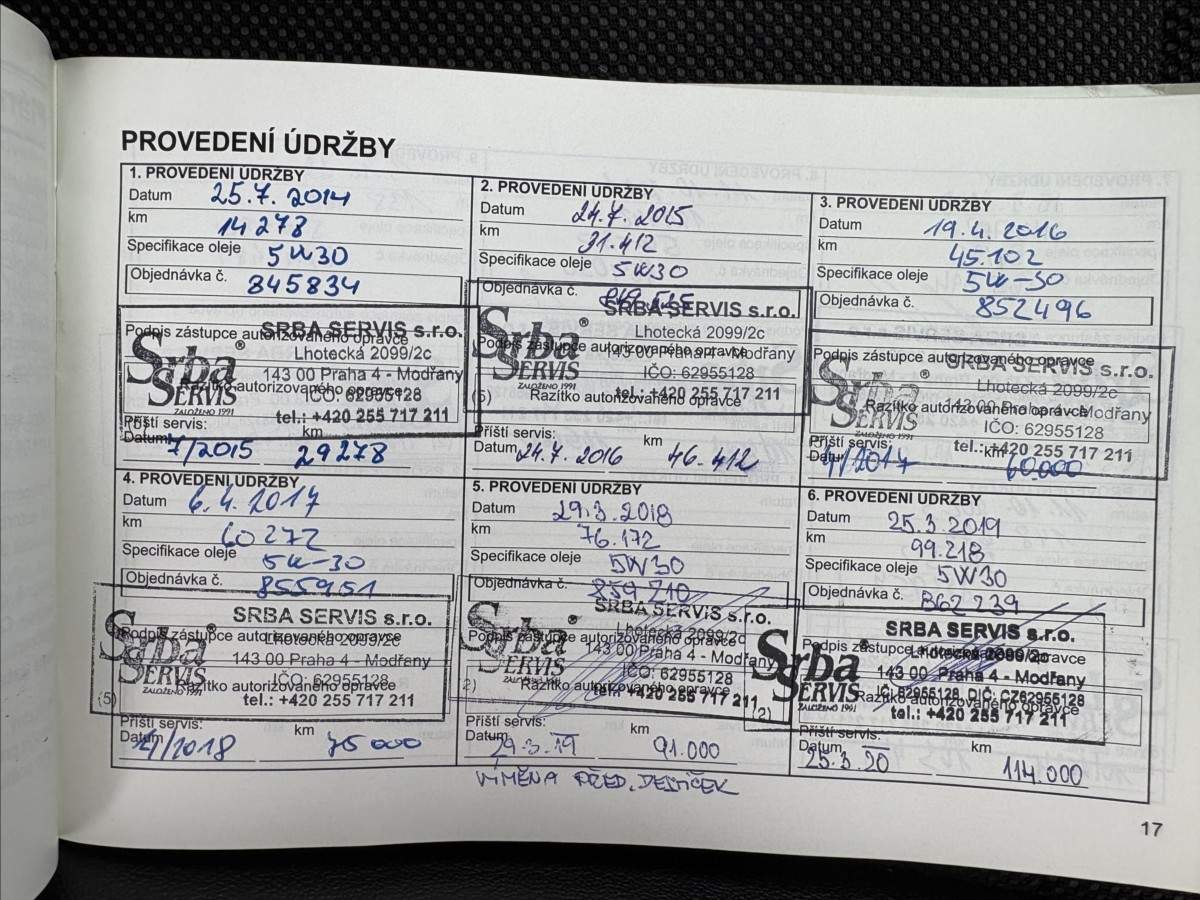 PROVEDENÍ ÚDRŽBY
1. PROVEDENÍ ÚDRŽBY
Datum 25.7.2014
km 14 278
Specifikace oleje 5W30
Objednávka č. 845834
Podpis zástupce autorizovaného opravce
SRBA SERVIS s.r.o.
Lhotecká 2099/2c
143 00 Praha 4 - Modřany
IČO: 62955128
tel.: +420 255 717 211
Srba SERVIS ®
ZALOŽENO 1991
Razítko autorizovaného opravce
Příští servis:
Datum 7/2015 km 29278
2. PROVEDENÍ ÚDRŽBY
Datum 24.7.2015
km 31.412
Specifikace oleje 5W30
Objednávka č.
SRBA SERVIS s.r.o.
Lhotecká 2099/2c
Podpis zástupce autorizovaného opravce
143 00 Praha 4 - Modřany
IČO: 62955128
tel.: +420 255 717 211
Srba SERVIS ®
ZALOŽENO 1991
Razítko autorizovaného opravce
Příští servis:
Datum 24.7.2016 km 46.412
3. PROVEDENÍ ÚDRŽBY
Datum 19.4.2016
km 45102
Specifikace oleje 5W-30
Objednávka č. 852496
Podpis zástupce autorizovaného opravce
SRBA SERVIS s.r.o.
Lhotecká 2099/2c
143 00 Praha 4 - Modřany
IČO: 62955128
tel.: +420 255 717 211
Srba SERVIS ®
ZALOŽENO 1991
Razítko autorizovaného opravce
Příští servis:
Datum 4/2017 km 60.000
4. PROVEDENÍ ÚDRŽBY
Datum 6.4.2017
km 60272
Specifikace oleje 5W-30
Objednávka č. 855951
SRBA SERVIS s.r.o.
Podpis zástupce autorizovaného opravce
Lhotecká 2099/2c
143 00 Praha 4 - Modřany
IČO: 62955128
tel.: +420 255 717 211
Srba SERVIS ®
ZALOŽENO 1991
Razítko autorizovaného opravce
(5)
Příští servis:
Datum /2018 km 75000
5. PROVEDENÍ ÚDRŽBY
Datum 29.3.2018
km 76.172
Specifikace oleje 5W30
Objednávka č. 859210
SRBA SERVIS s.r.o.
Lhotecká 2099/2c
Podpis zástupce autorizovaného opravce
143 00 Praha 4 - Modřany
IČO: 62955128
tel.: +420 255 717 211
Srba SERVIS ®
ZALOŽENO 1991
Razítko autorizovaného opravce
Příští servis:
Datum 29.3.19 km 91.000
VÝMĚNA PŘED. DESTIČEK
6. PROVEDENÍ ÚDRŽBY
Datum 25.3.2019
km 99.218
Specifikace oleje 5W30
Objednávka č. 862239
SRBA SERVIS s.r.o.
Podpis zástupce autorizovaného opravce
Lhotecká 2099/2c
143 00 Praha 4 - Modřany
IČ: 62955128, DIČ: CZ62955128
tel.: +420 255 717 211
Srba SERVIS ®
ZALOŽENO 1991
Razítko autorizovaného opravce
Příští servis:
Datum 25.3.20 km 114.000
17